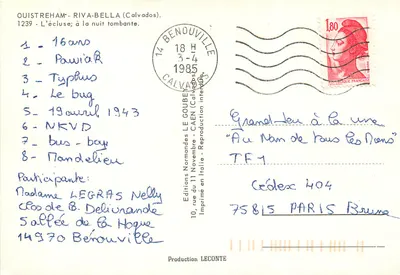 OUISTREHAM - RIVA-BELLA (Calvados).
1239 - L'écluse; à la nuit tombante.
1 - 16 ans
2 - PawiaK
3 - Typhus
4 - Le bug
5 - 19 avril 1943
6 - NKVD
7 - bus-bay
8 - Mandelieu
Participante:
Madame LEGRAS Nelly
Clos de B. Delivrande
5 allée de la Hogue
14970 Bénouville
14 BENOUVILLE
18 H
3-4
1985
CALVADOS
Editions Normandes LE GOUBEY
10, rue du 11 Novembre - CAEN (Calvados)
Imprimé en Italie - Reproduction interdite
1,80
Grand-Jeu à la une
"Au Nom de tous les Miens"
TF1
Cédex 404
75815 PARIS Brune
Production LECONTE